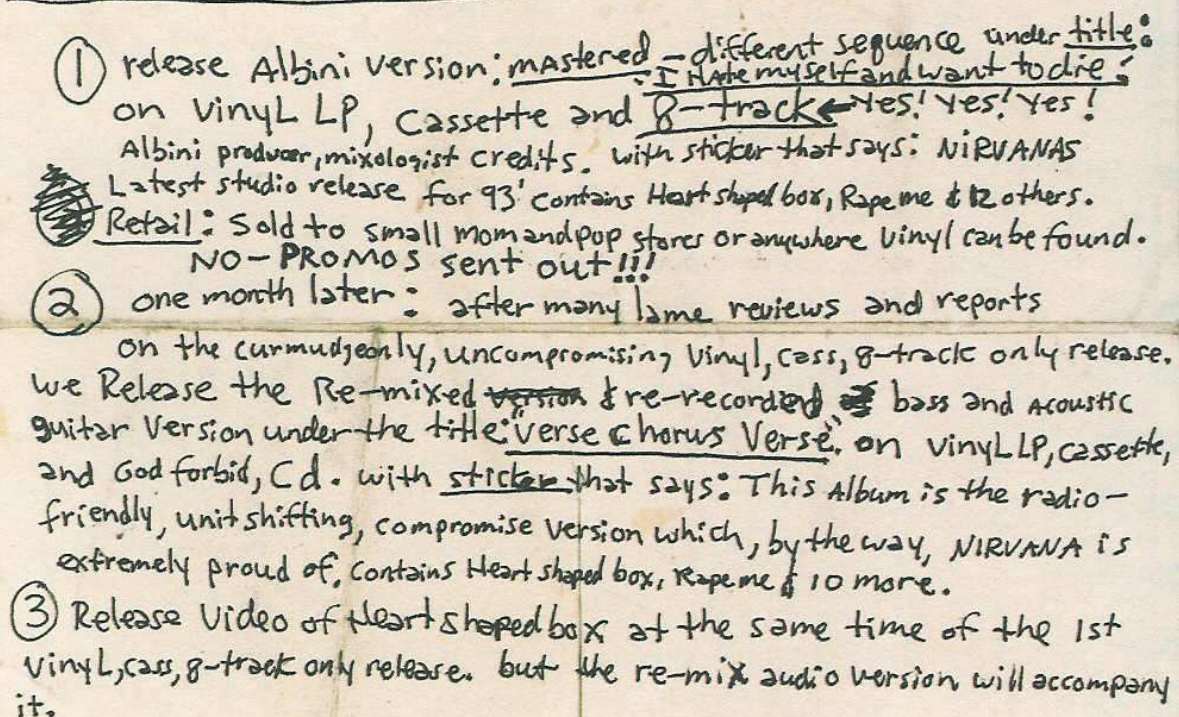 ① release Albini version: mastered - different sequence under title:
: I Hate myself and want to die:
on vinyl LP, cassette and 8-track ← Yes! Yes! Yes!
Albini producer, mixologist credits. with sticker that says: NIRVANAS
Latest studio release for 93' contains Heart shaped box, Rape me & 12 others.
Retail: Sold to small mom and pop stores or anywhere vinyl can be found.
NO-PROMOS sent out!!!
② one month later: after many lame reviews and reports
on the curmudgeonly, uncompromising vinyl, cass, 8-track only release.
we Release the Re-mixed version & re-recorded bass and acoustic
guitar version under the title: "Verse Chorus Verse". on vinyl LP, cassette,
and God forbid, Cd. with sticker that says: This Album is the radio-
friendly, unit shifting, compromise version which, by the way, NIRVANA is
extremely proud of. contains Heart shaped box, Rape me & 10 more.
③ Release Video of Heart shaped box at the same time of the 1st
vinyl, cass, 8-track only release. but the re-mix audio version will accompany
it.